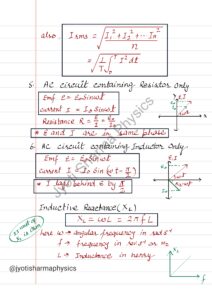 also I rms = √(I₁² + I₂² + ... Iₙ² / n)
= √(1/T ∫₀ᵀ I² dt)
5. AC circuit containing Resistor Only
Emf E = E₀ Sin ωt
current I = I₀ Sin ωt
Resistance R =
* E and I are in same phase
6. AC circuit containing Inductor Only
Emf E = E₀ Sin ωt
current I = I₀ Sin (ωt - π/2)
* I lags behind E by π/2
Inductive Reactance (X_L)
X_L = ωL = 2πfL
here ω → angular frequency in rad s⁻¹
f → frequency in s⁻¹ or Hz
L → Inductance in henry
@jyotisharmaphysics
X_L
f